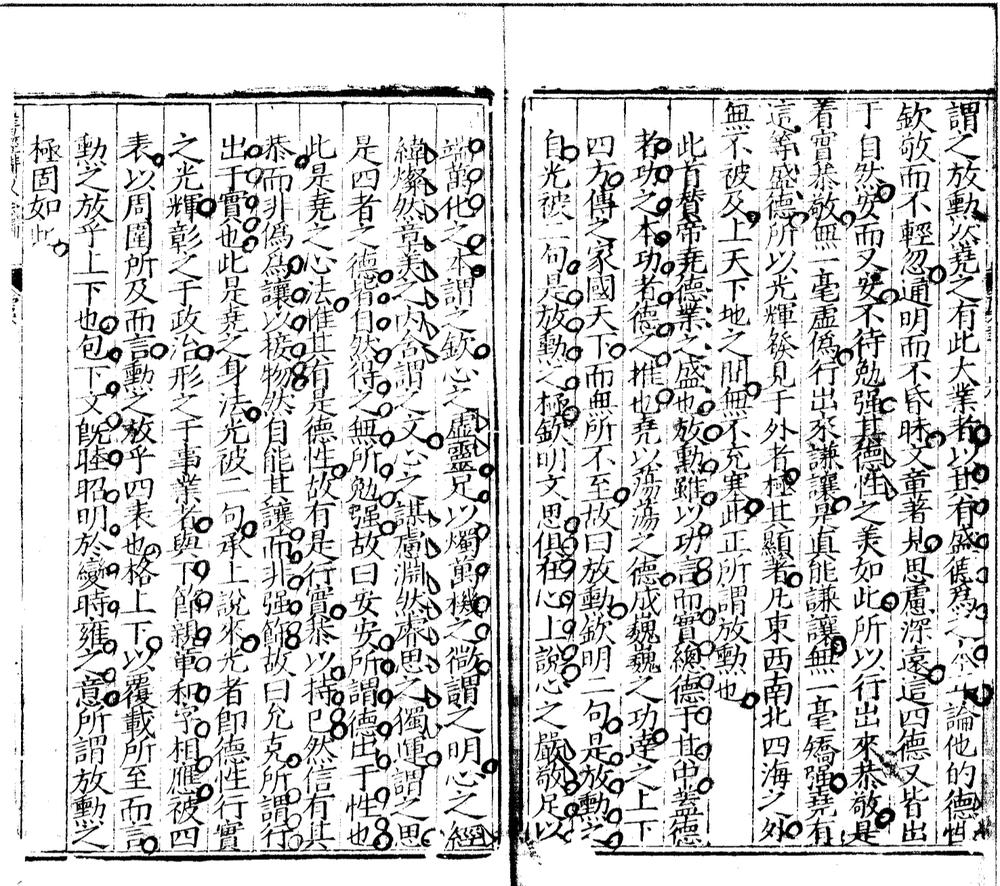 謂之放勳然堯之有此大業者以其有盛德爲之本論他的德性
欽敬而不輕忽通明而不昏昧文章著見思慮深遠這四德又皆出
于自然安而又安不待勉强其德性之美如此所以行出來恭敬是
着實恭敬無一毫虛僞行出來謙讓是真能謙讓無一毫矯强堯有
這等盛德所以光輝發見于外者極其顯著凡東西南北四海之外
無不被及上天下地之間無不充塞此正所謂放勳也
此首贊帝堯德業之盛也放勳雖以功言而實總德于其中蓋德
者功之本功者德之推也堯以蕩蕩之德成巍巍之功達之上下
四方傳之家國天下而無所不至故曰放勳欽明二句是放勳之
自光被二句是放勳之極欽明文思俱在心上說心之嚴敬足以
端萬化之本謂之欽心之虛靈足以燭萬機之微謂之明心之經
緯燦然章美之內含謂之文心之謀慮淵然睿思之獨運謂之思
是四者之德皆自然得之無所勉强故曰安安所謂德出于性也
此是堯之心法惟其有是德性故有是行實恭以持己然信有其
恭而非僞爲讓以接物然自能其讓而非强飾故曰允克所謂行
出于實也此是堯之身法光被二句承上說來光者即德性行實
之光輝彰之于政治形之于事業者與下節親章和字相應被四
表以周圍所及而言勳之放乎四表也格上下以覆載所至而言
動之放乎上下也句下文既睦昭明於變時雍之意所謂放勳之
極固如此